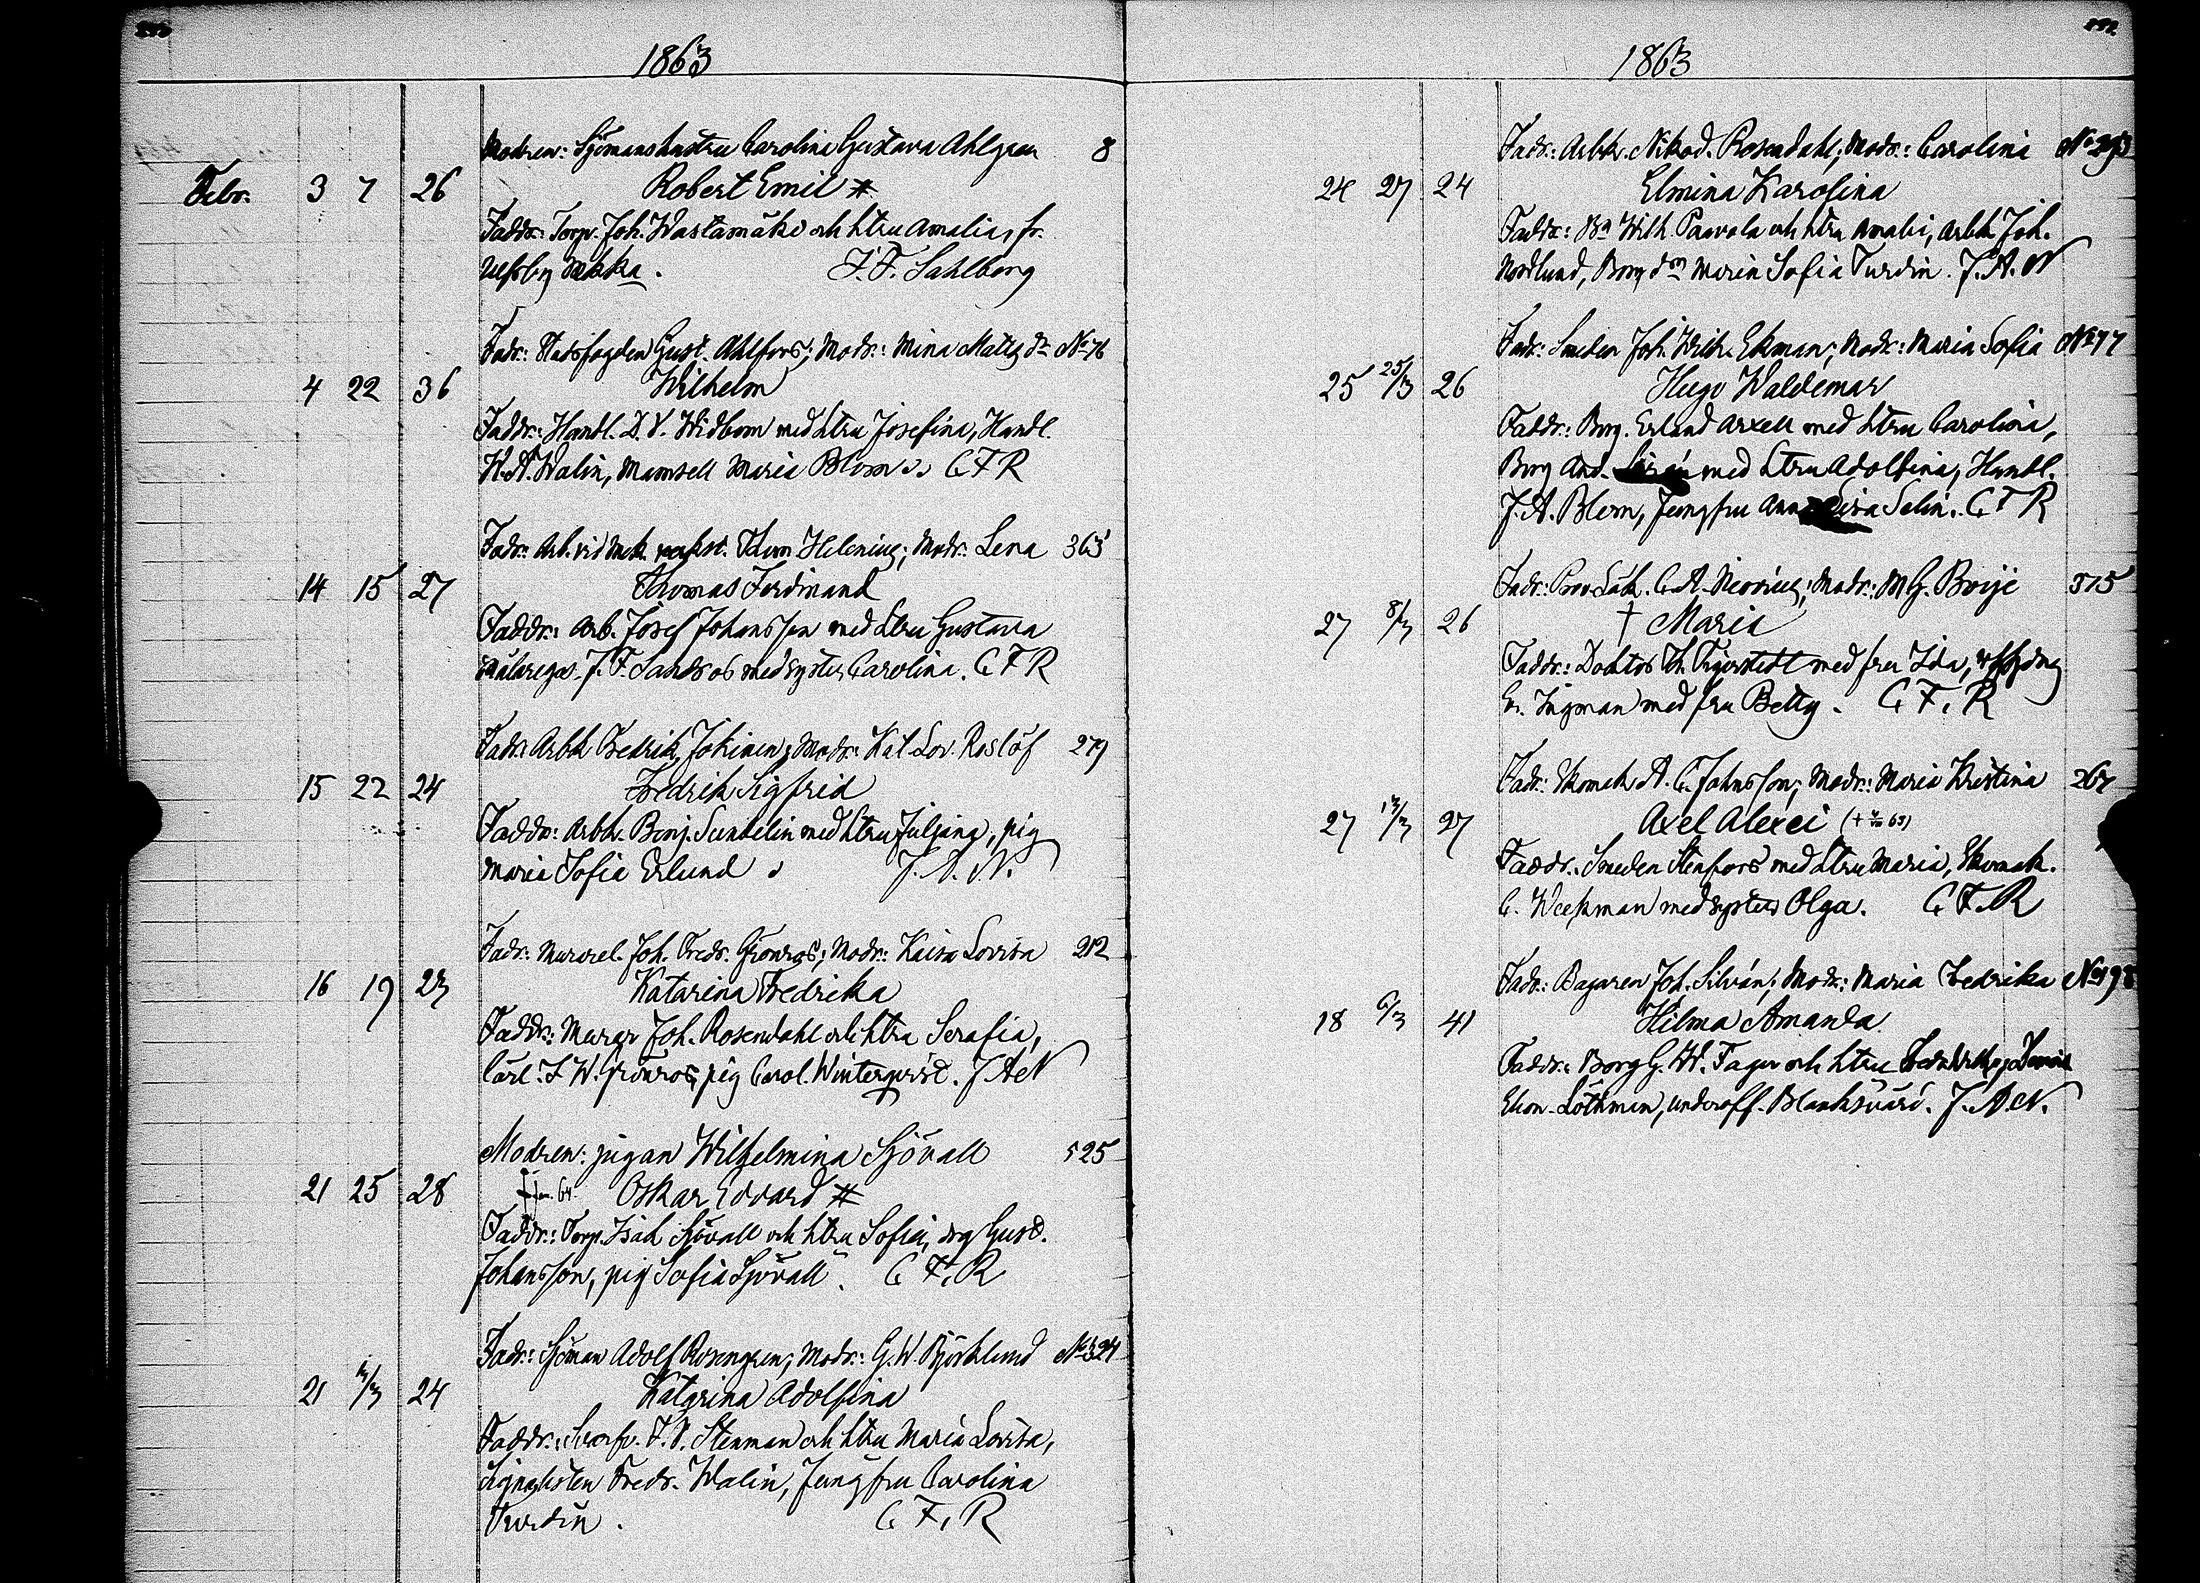 1863
Modren: Sjömanshustru Carolina Gustava Ahlgren 8
Febr. 3 7 26 Robert Emil #
Faddr.: Torp. Joh. Wästamäki och htru Amalia, fr.
Ulfsby
J. F. Sahlberg
Fadr: Stadsfogden Gust. Ahlfors; Modr: Mina Matts dr No 76
4 22 36 Wilhelm
Faddr: Handl. D. V. Widbom med htru Josefina, Handl.
K. A. Walin, Mamsell Maria Blom. C F R
Fadr: Arb. vid mek. verkst. Thom Helenius; Modr: Lena 363
14 15 27 Thomas Ferdinand
Faddr: Arb. Josef Johansson med htru Gustava
J. F. Sandros med syster Carolina. C F R
Fadr: Arbk Fredrik Jokinen; Modr: Kat Lov. Roslöf 279
15 22 24 Fredrik Sigfrid
Faddr: Arbk. Benj. Sundelin med htru Juliana, pig
Maria Sofia Erlund J. A. N.
Fadr: Murarel. Joh. Fredr. Grönroos; Modr: Kaisa Lovisa 212
16 19 23 Katarina Fredrika
Faddr: Murar Joh. Rosendahl och htru Serafia,
Carl. F W. Grönroos, pig Carol. Winterqvist. J A N
Modren: pigan Wilhelmina Sjövall 525
21 25 28 Oskar Edvard #
Faddr: Torp. Isak Sjövall och htru Sofia, drg Gust.
Johansson, pig Sofia Sjövall. C F. R
Fadr: Sjöman Adolf Rosengren; Modr: G. W. Björklund No 324
21 /3 24 Katarina Adolfina
Faddr: F. V. Stenman och htru Maria Lovisa,
Fredr. Walin, Jungfru Carolina
Turdin. C. F. R
1863
Fadr: Arbk. Nikod. Rosendahl; Modr: Carolina No 293
24 27 24 Elmina Karolina
Faddr: Wilh. Paavola och htru Amalie, Arbk Joh.
Nordlund, Borg dr Maria Sofia Turdin. J. A. N
Fadr: Smeden Joh. Wilh. Ekman; Modr: Maria Sofia No 77
25 25/3 26 Hugo Waldemar
Faddr: Borg. Erland Arxell med htru Carolina,
Borg And. med htru Adolfina, Handl.
J. A. Blom, Jungfru Anna Lisa Selin. C F R
Fadr: Prov. Läk. C. A. Neovius; Modr: M G. Boije 315
27 8/3 26 † Maria
Faddr: Doktor Th. Tigerstedt med fru Ida,
E. Ingman med fru Betty. C F. R
Fadr: Skomak A. C. Johnsson; Modr: Maria Kristina 267
27 /3 27 Axel Alexei
Faddr: Smeden Stenfors med htru Maria, Skomak.
C. Weckman med syster Olga. C F. R
Fadr: Bagaren Joh. Silván; Modr: Maria Fredrika No 198
18 6/3 41 Hilma Amanda
Faddr: Borg G. W. Fager och htru
Löthman, underoff. Blanksvärd. J. A. N.